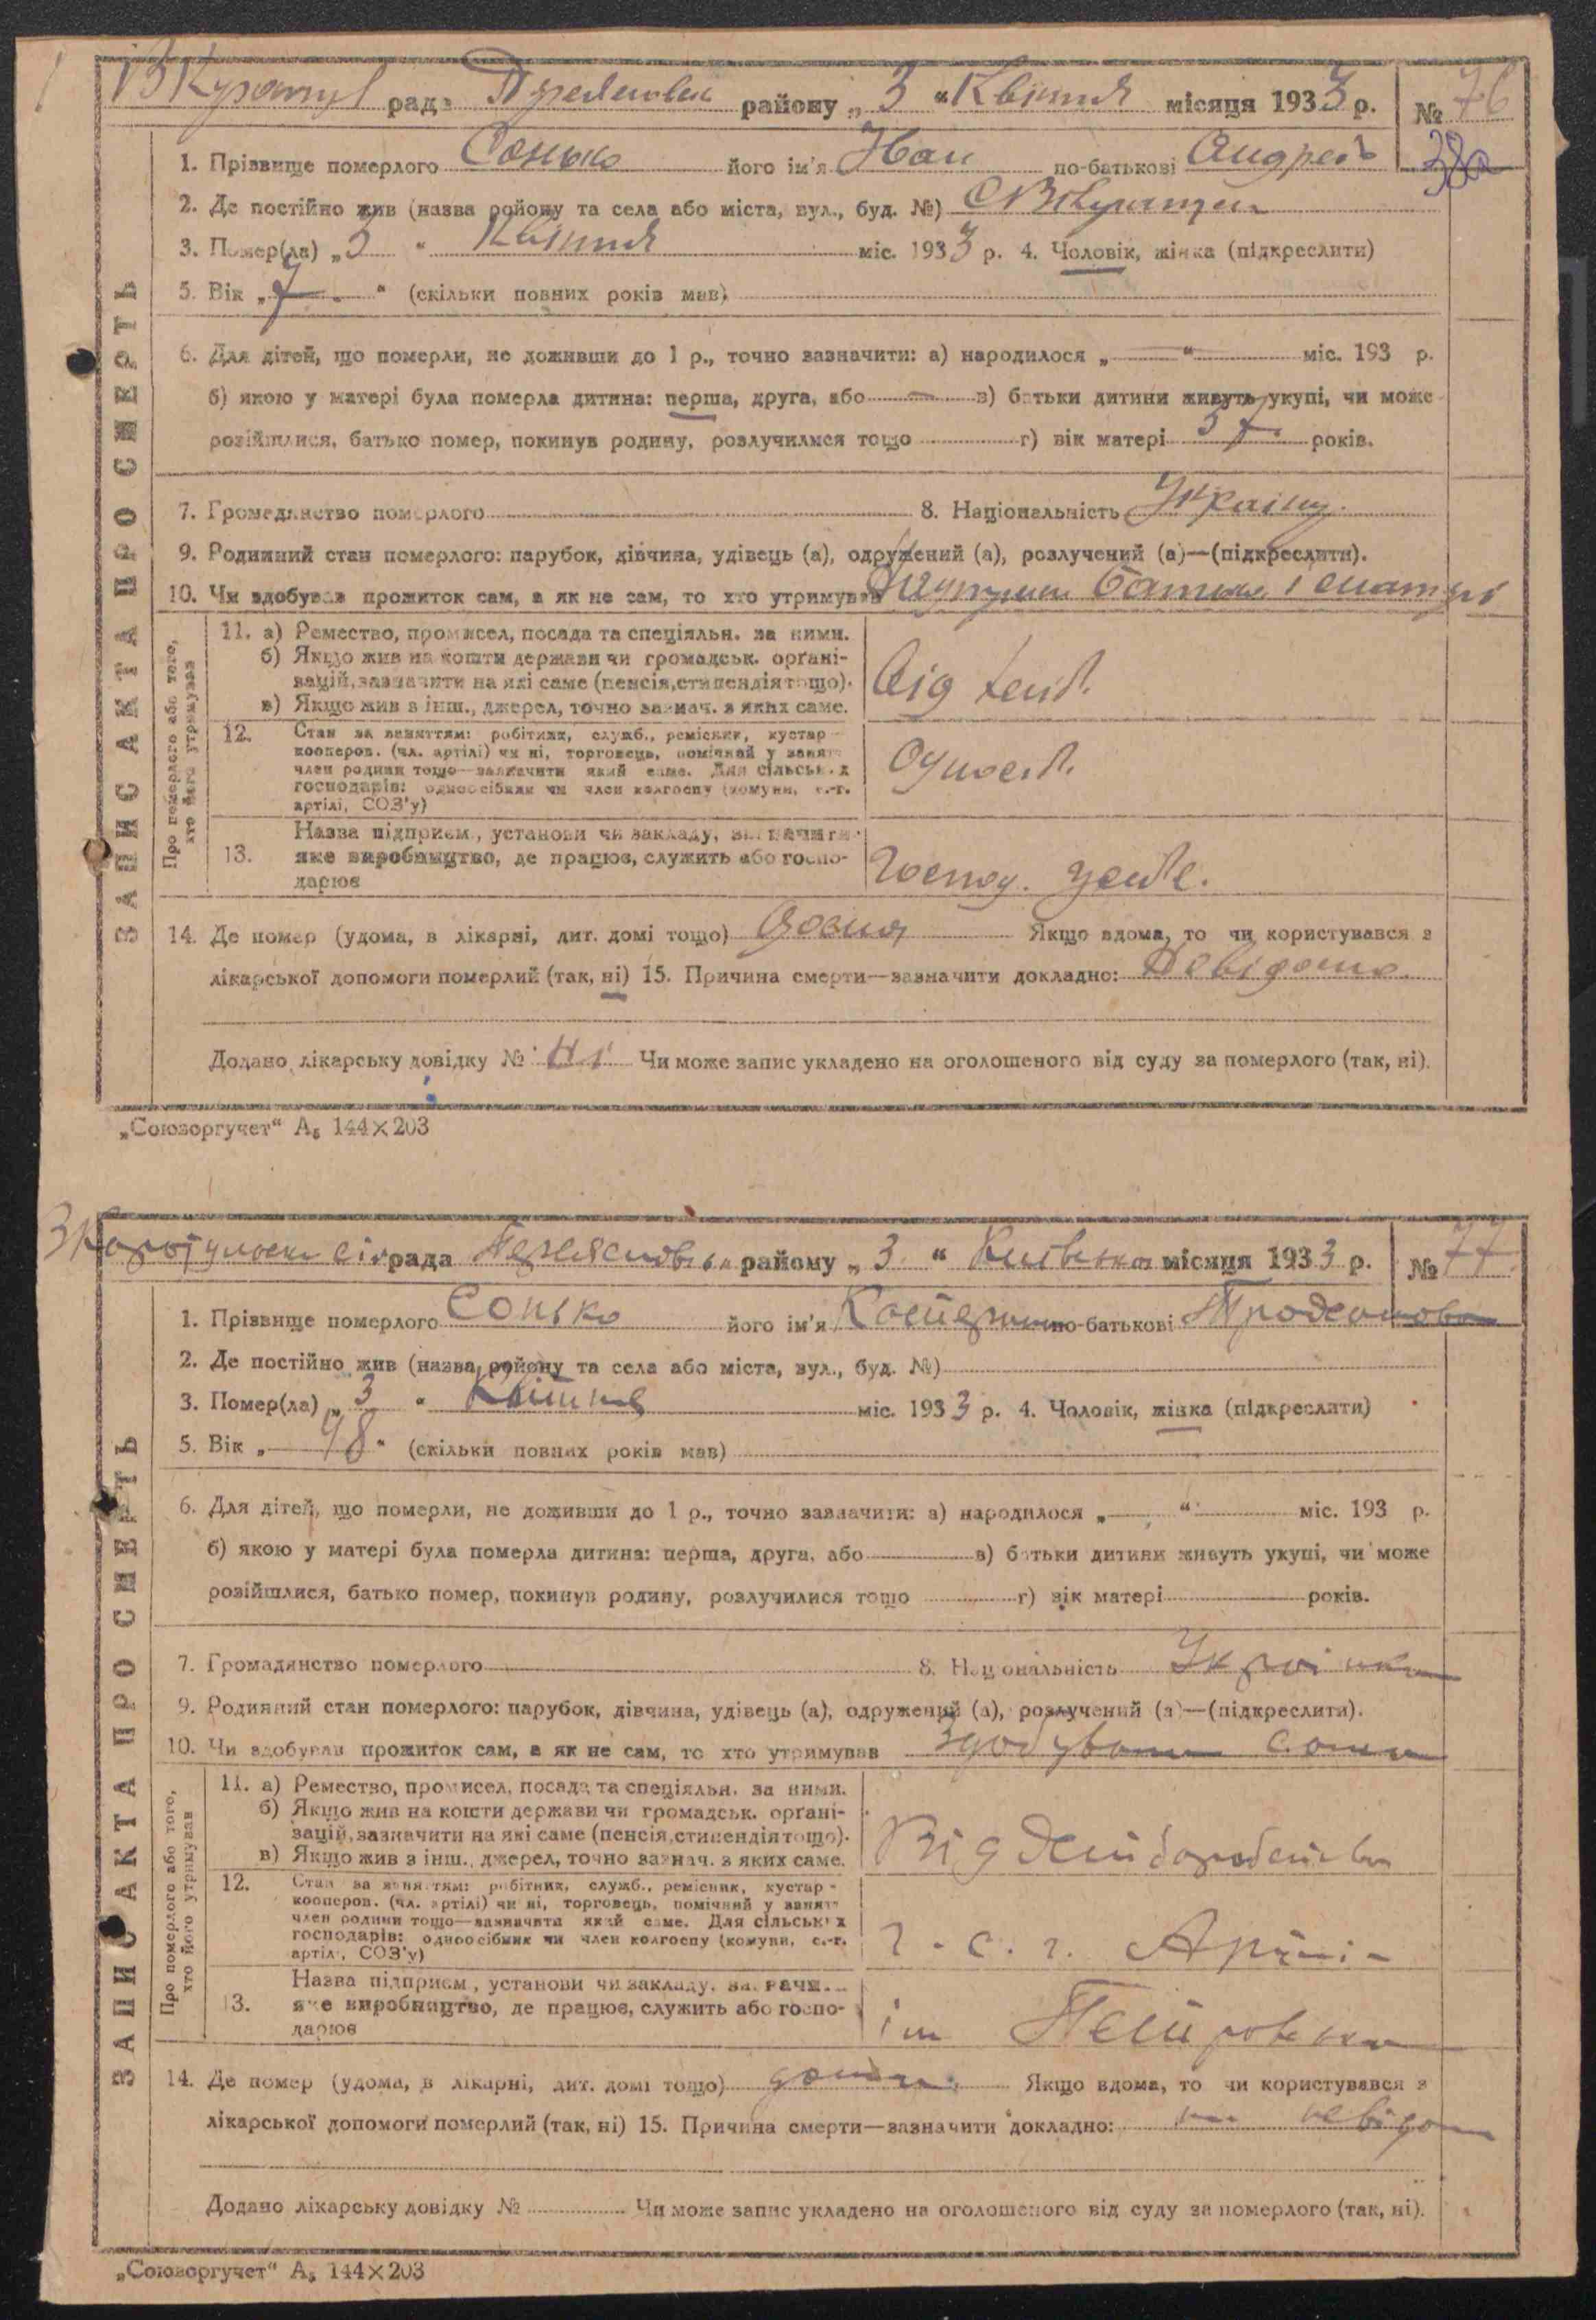 ЗАПИС АКТА ПРО СМЕРТЬ
рада району „ 3 “ Квітня місяця 1933 р. № 76
1. Прізвище померлого Сонько його ім'я Іван по-батькові Андреев
2. Де постійно жив (назва району та села або міста, вул., буд. №)
3. Помер(ла) „ 3 “ Квітня міс. 1933 р. 4. Чоловік, жінка (підкреслити)
5. Вік „ 7 “ (скільки повних років мав)
6. Для дітей, що померли, не доживши до 1 р., точно зазначити: а) народилося „ “ міс. 193 р.
б) якою у матері була померла дитина: перша, друга, або в) батьки дитини живуть укупі, чи може
розійшлися, батько помер, покинув родину, розлучилися тощо г) вік матері 37 років.
7. Громадянство померлого 8. Національність Україн.
9. Родинний стан померлого: парубок, дівчина, удівець (а), одружений (а), розлучений (а)—(підкреслити).
10. Чи здобував прожиток сам, а як не сам, то хто утримував
Про померлого або того, хто його утримував
11. а) Ремество, промисел, посада та спеціяльн. за ними.
б) Якщо жив на кошти держави чи громадськ. органі-
зацій, зазначити на які саме (пенсія, стипендія тощо).
в) Якщо жив з інш., джерел, точно зазнач. з яких саме.
Від
12. Стан за заняттям: робітник, служб., ремісник, кустар -
кооперов. (чл. артілі) чи ні, торговець, помічний у занятт.
член родини тощо—зазначити який саме. Для сільських
господарів: одноосібник чи член колгоспу (комуни, с.-г.
артілі, СОЗ'у)
Одноос.
13. Назва підприєм., установи чи закладу, зазначити
яке виробництво, де працює, служить або госпо-
дарює
14. Де помер (удома, в лікарні, дит. домі тощо) Дома Якщо вдома, то чи користувався з
лікарської допомоги померлий (так, ні) 15. Причина смерти—зазначити докладно: Невідома
Додано лікарську довідку № Ні Чи може запис укладено на оголошеного від суду за померлого (так, ні).
„Союзоргучет“ А₅ 144×203
ЗАПИС АКТА ПРО СМЕРТЬ
рада району „ 3 “ місяця 1933 р. № 77
1. Прізвище померлого Сонько його ім'я Катерина по-батькові
2. Де постійно жив (назва району та села або міста, вул., буд. №)
3. Помер(ла) „ 3 “ міс. 1933 р. 4. Чоловік, жінка (підкреслити)
5. Вік „ 48 “ (скільки повних років мав)
6. Для дітей, що померли, не доживши до 1 р., точно зазначити: а) народилося „ “ міс. 193 р.
б) якою у матері була померла дитина: перша, друга, або в) батьки дитини живуть укупі, чи може
розійшлися, батько помер, покинув родину, розлучилися тощо г) вік матері років.
7. Громадянство померлого 8. Національність Українка
9. Родинний стан померлого: парубок, дівчина, удівець (а), одружений (а), розлучений (а)—(підкреслити).
10. Чи здобував прожиток сам, а як не сам, то хто утримував здобувала сама
Про померлого або того, хто його утримував
11. а) Ремество, промисел, посада та спеціяльн. за ними.
б) Якщо жив на кошти держави чи громадськ. органі-
зацій, зазначити на які саме (пенсія, стипендія тощо).
в) Якщо жив з інш., джерел, точно зазнач. з яких саме.
Від
12. Стан за заняттям: робітник, служб., ремісник, кустар -
кооперов. (чл. артілі) чи ні, торговець, помічний у занятт.
член родини тощо—зазначити який саме. Для сільських
господарів: одноосібник чи член колгоспу (комуни, с.-г.
артілі, СОЗ'у)
13. Назва підприєм., установи чи закладу, зазначити
яке виробництво, де працює, служить або госпо-
дарює
ім Петровсько
14. Де помер (удома, в лікарні, дит. домі тощо) дома Якщо вдома, то чи користувався з
лікарської допомоги померлий (так, ні) 15. Причина смерти—зазначити докладно:
Додано лікарську довідку № Чи може запис укладено на оголошеного від суду за померлого (так, ні).
„Союзоргучет“ А₅ 144×203